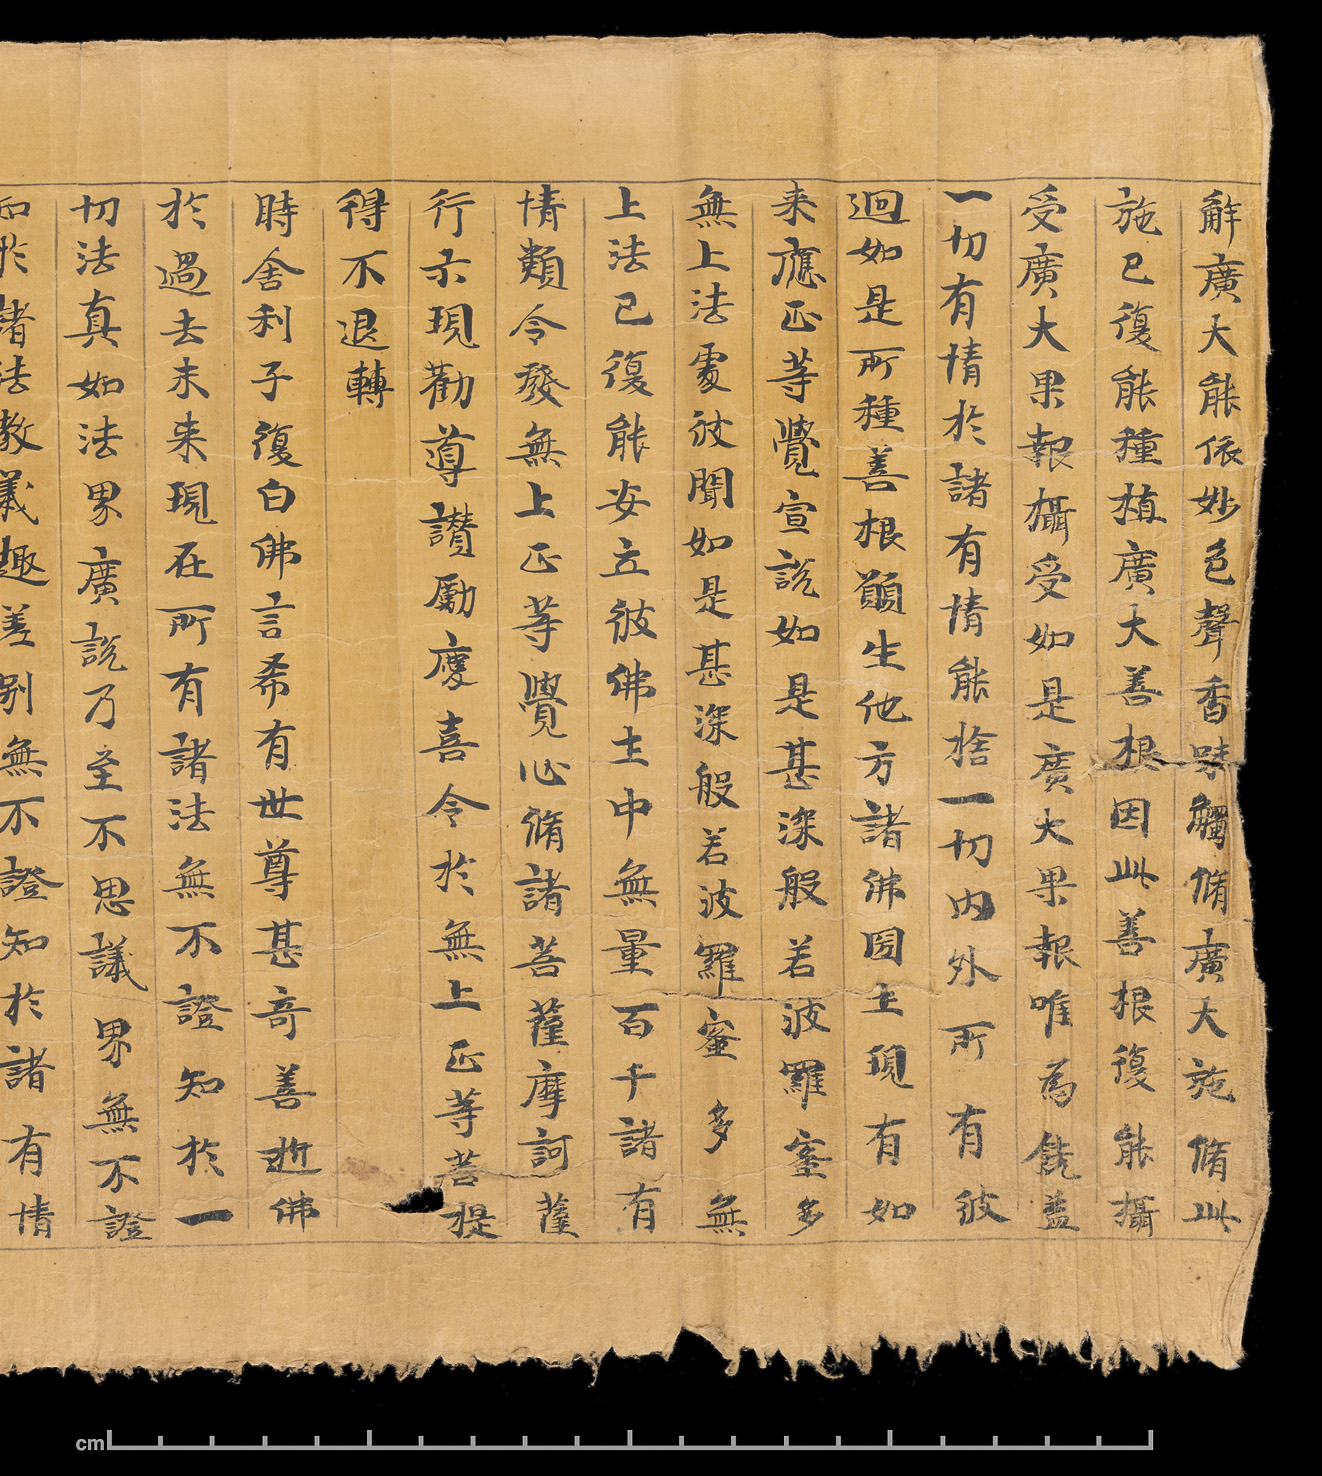 解廣大能依妙色聲香味觸脩廣大施脩此
施已復能種植廣大善根因此善根復能攝
受廣大果報攝受如是廣大果報唯為饒益
一切有情於諸有情能捨一切內外所有彼
迴如是所種善根願生他方諸佛圀土現有如
来應正等覺宣説如是甚深般若波羅蜜多
無上法處彼聞如是甚深般若波羅蜜多無
上法已復能安立彼佛土中無量百千諸有
情類令發無上正等覺心脩諸菩薩摩訶薩
行示現勸導讚勵慶喜令於無上正等菩提
得不退轉
時舍利子復白佛言希有世尊甚奇善逝佛
於過去未来現在所有諸法無不證知於一
切法真如法界廣説乃至不思議界無不證
知於諸法教義趣差别無不證知於諸有情
cm